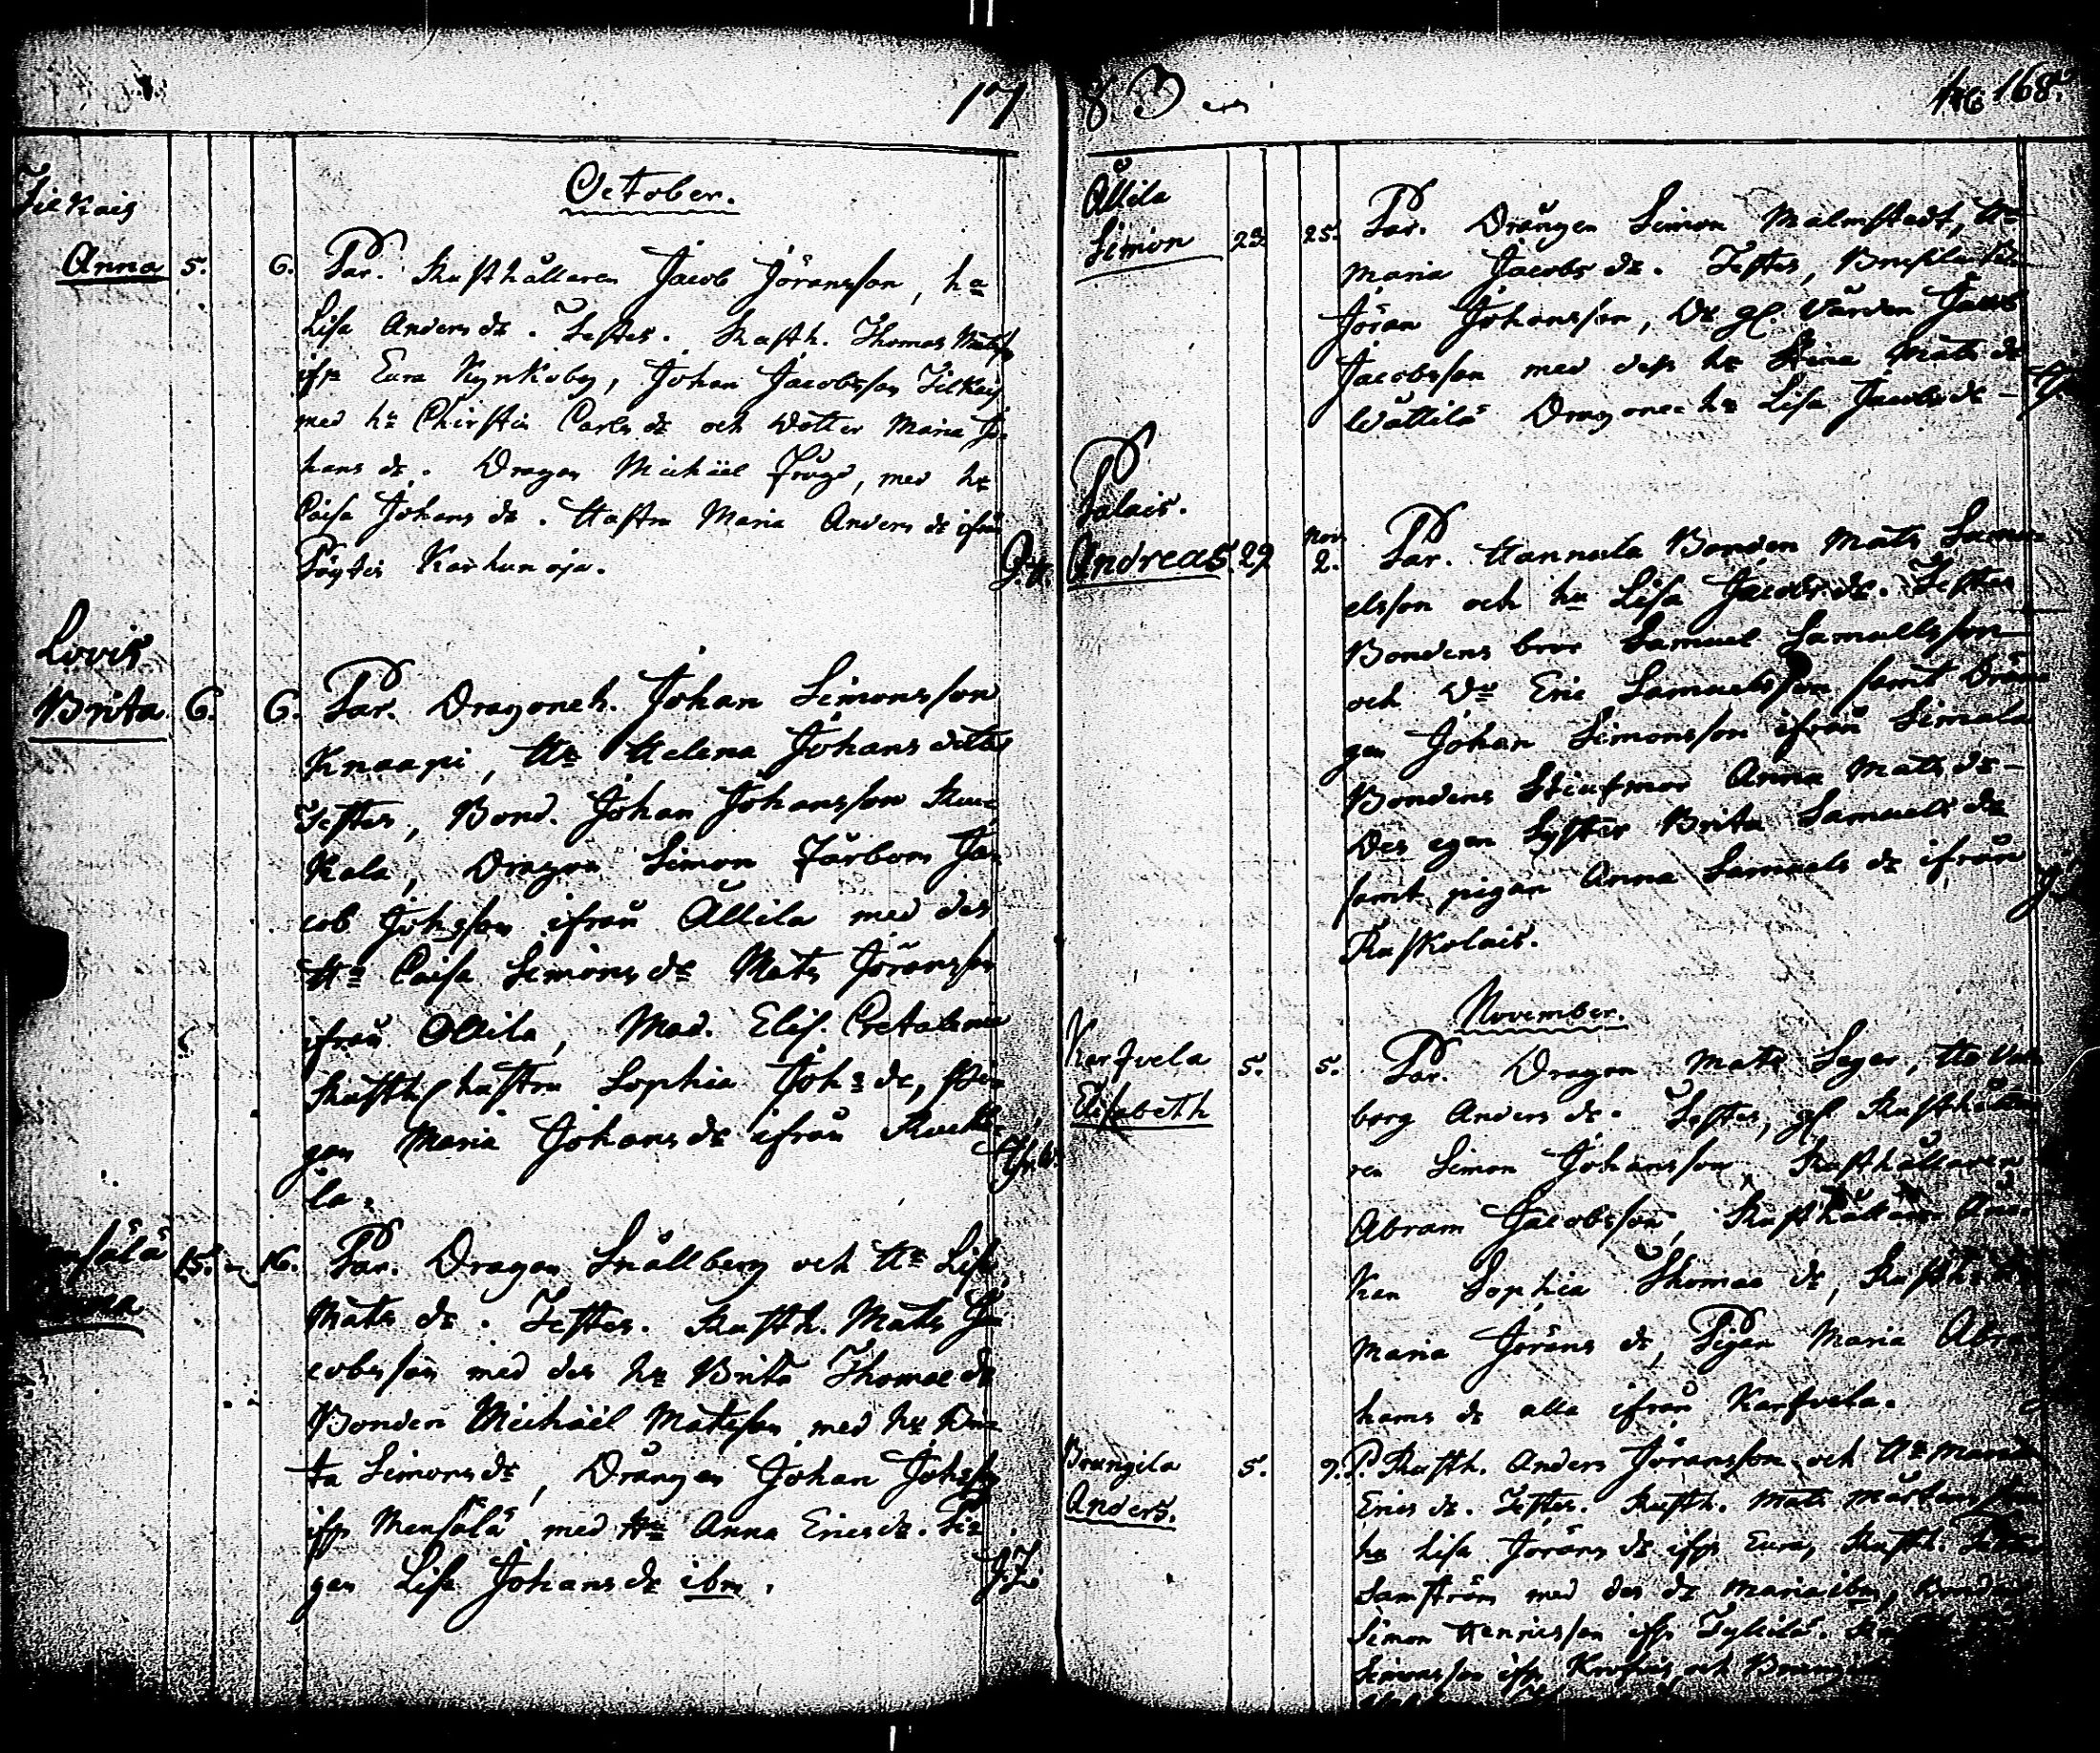 17
October.
Tilkais
Anna 5. 6. Par. Rusthållaren Jacob Jöransson, ha
Lisa Anders dr. Testes. Rusth. Thomas Matss
ifr Eura Kynkoby, Johan Jacobsson Tilkais
med hu Chirstin Carls dr och dotter Maria Jo-
hans dr. Dragon Michäel Frögd, med hr
Caisa Johans dr. Hustru Maria Anders dr ifrån
Pöytis Karhunoja.
Lovis
Brita 6. 6. Par. Dragoneh. Johan Simonsson
Knaapi, Hr Helena Johans dotter
Testes, Bond. Johan Johansson
Kala, Dragon Simon Färbom Ja-
cob Johsson ifrån Ållila med des
Hu Caisa Simons dr Mats Jöransson
ifrån Ollila, Mad. Elis. Cretalena
Rusth. hustru Sophia Johs dr, Pi-
gan Maria Johans dr ifrån
la.
15. 16. Par. Dragon Snällberg och Hu Lisa
Mats dr. Testes. Rusth. Mats Ja-
cobsson med des hr Brita Thomae dr
Bonden Michäel Matsson med hr
ta Simons dr, Drängen Johan Johsson
ifr Mensälä med Hu Anna Erics dr. Pi-
gan Lisa Johans dr ibm.
83
168.
Ållila
Simon 23 25. Par. Drängen Simon Malmstedt, Hu
Maria Jacobs dr. Testes,
Jöran Johansson, Dr gl. Värden Jacob
Jacobsson med dess hr Stina Mats dr
Wättilä Dragonen hr Lisa Jacobs dr
Palais.
Andreas. 29 Nov. 2. Par. Hannula Bonden Mats Samu-
elsson och hu Lisa Jacobs dr. Testes
Bondens bror Samuel Samuelsson
och Dr Eric Samuelsson samt Drän-
gen Johan Simonsson ifrån Simala
Bondens Stiufmor Anna Mats dr
Des egen Syster Brita Samuels dr
samt pigan Anna Samuels dr ifrån
Raskolais.
November.
Karfvela
Elisabeth 5. 5. Par. Dragon Mats Seger, Hu Val-
borg Anders dr. Testes, gl Rusthålla-
ren Simon Johansson, Rusthållaren
Abram Jacobsson, Rusthållare Än-
kan Sophia Thomae dr, Rusth.
Maria Jörans dr, Pigan Maria Abra-
hams dr alla ifrån Karfvela.
Brungila
Anders. 5. 9. P. Rusth. Anders Jöransson och Hu Maria
Erics dr. Testes. Rusth. Mats Mårtensson
hu Lisa Jörans dr ifr Eura, Rusth.
Samström med des dr Maria ibm, Bonden
Simon Henricsson ifr
Simonsson ifr och